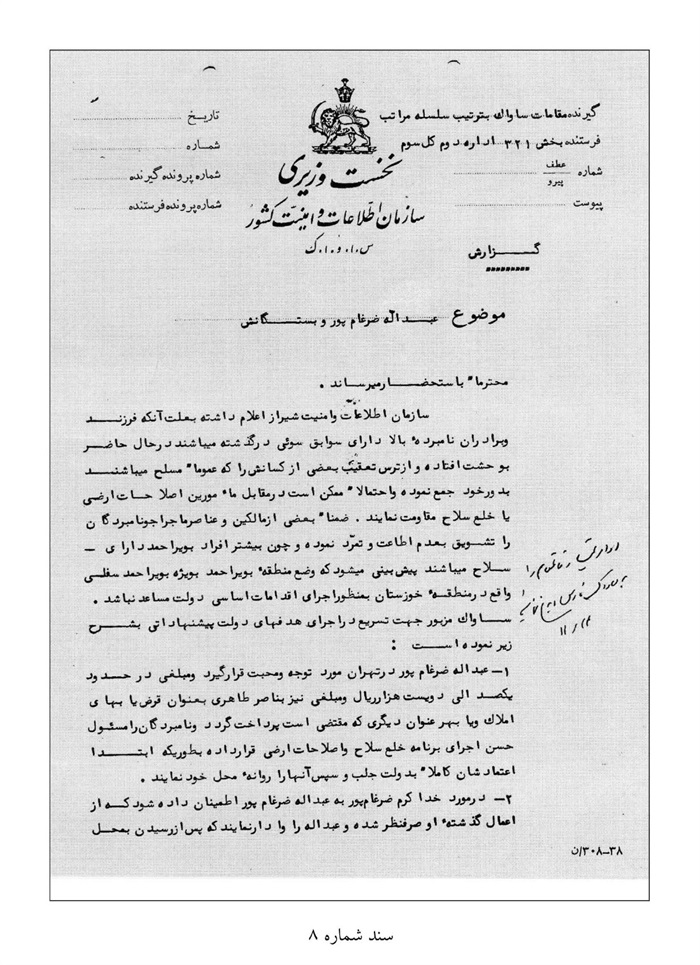 گیرنده مقامات ساواك بترتیب سلسله مراتب
فرستنده بخش ۳۲۱ اداره دوم کل سوم
شماره عطف
پیرو
پیوست
تاریخ
شماره
شماره پرونده گیرنده
شماره پرونده فرستنده
نخست وزیری
سازمان اطلاعات و امنیت کشور
س.ا.و.ا.ک
گزارش
موضوع عبداله ضرغام پور و بستگانش
محترما" باستحضار میرساند .
سازمان اطلاعات وامنیت شیراز اعلام داشته بعلت آنکه فرزند
وبرادران نامبرده بالا دارای سوابق سوئی درگذشته میباشند درحال حاضر
بوحشت افتاده و ازترس تعقیب بعضی از کسانش را که عموما" مسلح میباشند
بدورخود جمع نموده واحتمالا" ممکن است درمقابل مأمورین اصلاحات ارضی
یا خلع سلاح مقاومت نمایند . ضمنا" بعضی ازمالکین و عناصرماجراجونامبردگان
را تشویق بعدم اطاعت و تمرّد نموده و چون بیشتر افراد بویراحمد دارای -
سلاح میباشند پیش بینی میشود که وضع منطقه بویراحمد بویژه بویراحمد سفلی
واقع درمنطقه خوزستان بمنظوراجرای اقدامات اساسی دولت مساعد نباشد .
ساواك مزبور جهت تسریع دراجرای هدفهای دولت پیشنهاداتی بشرح
زیر نموده است :
۱- عبداله ضرغام پور درتهران مورد توجه ومحبت قرارگیرد ومبلغی در حدود
یکصد الی دویست هزارریال ومبلغی نیزبناصر طاهری بعنوان قرض یا بهای
املاك ویا بهر عنوان دیگری که مقتضی است پرداخت گردد ونامبردگان رامسئول
حسن اجرای برنامه خلع سلاح واصلاحات ارضی قرارداده بطوریکه ابتدا
اعتمادشان کاملا" بدولت جلب و سپس آنها را روانه محل خود نمایند .
۲- درمورد خداکرم ضرغامپور به عبداله ضرغام پور اطمینان داده شود که از
اعمال گذشته او صرفنظر شده و عبداله را وادارنمایند که پس از رسیدن بمحل
۳۰۸-۳۸/ن
سند شماره ۸